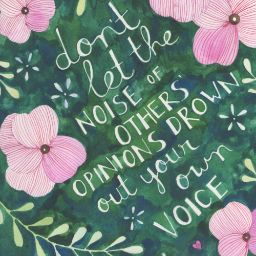 don't
let the
NOISE OF
OTHERS'
OPINIONS DROWN
out your own
VOICE